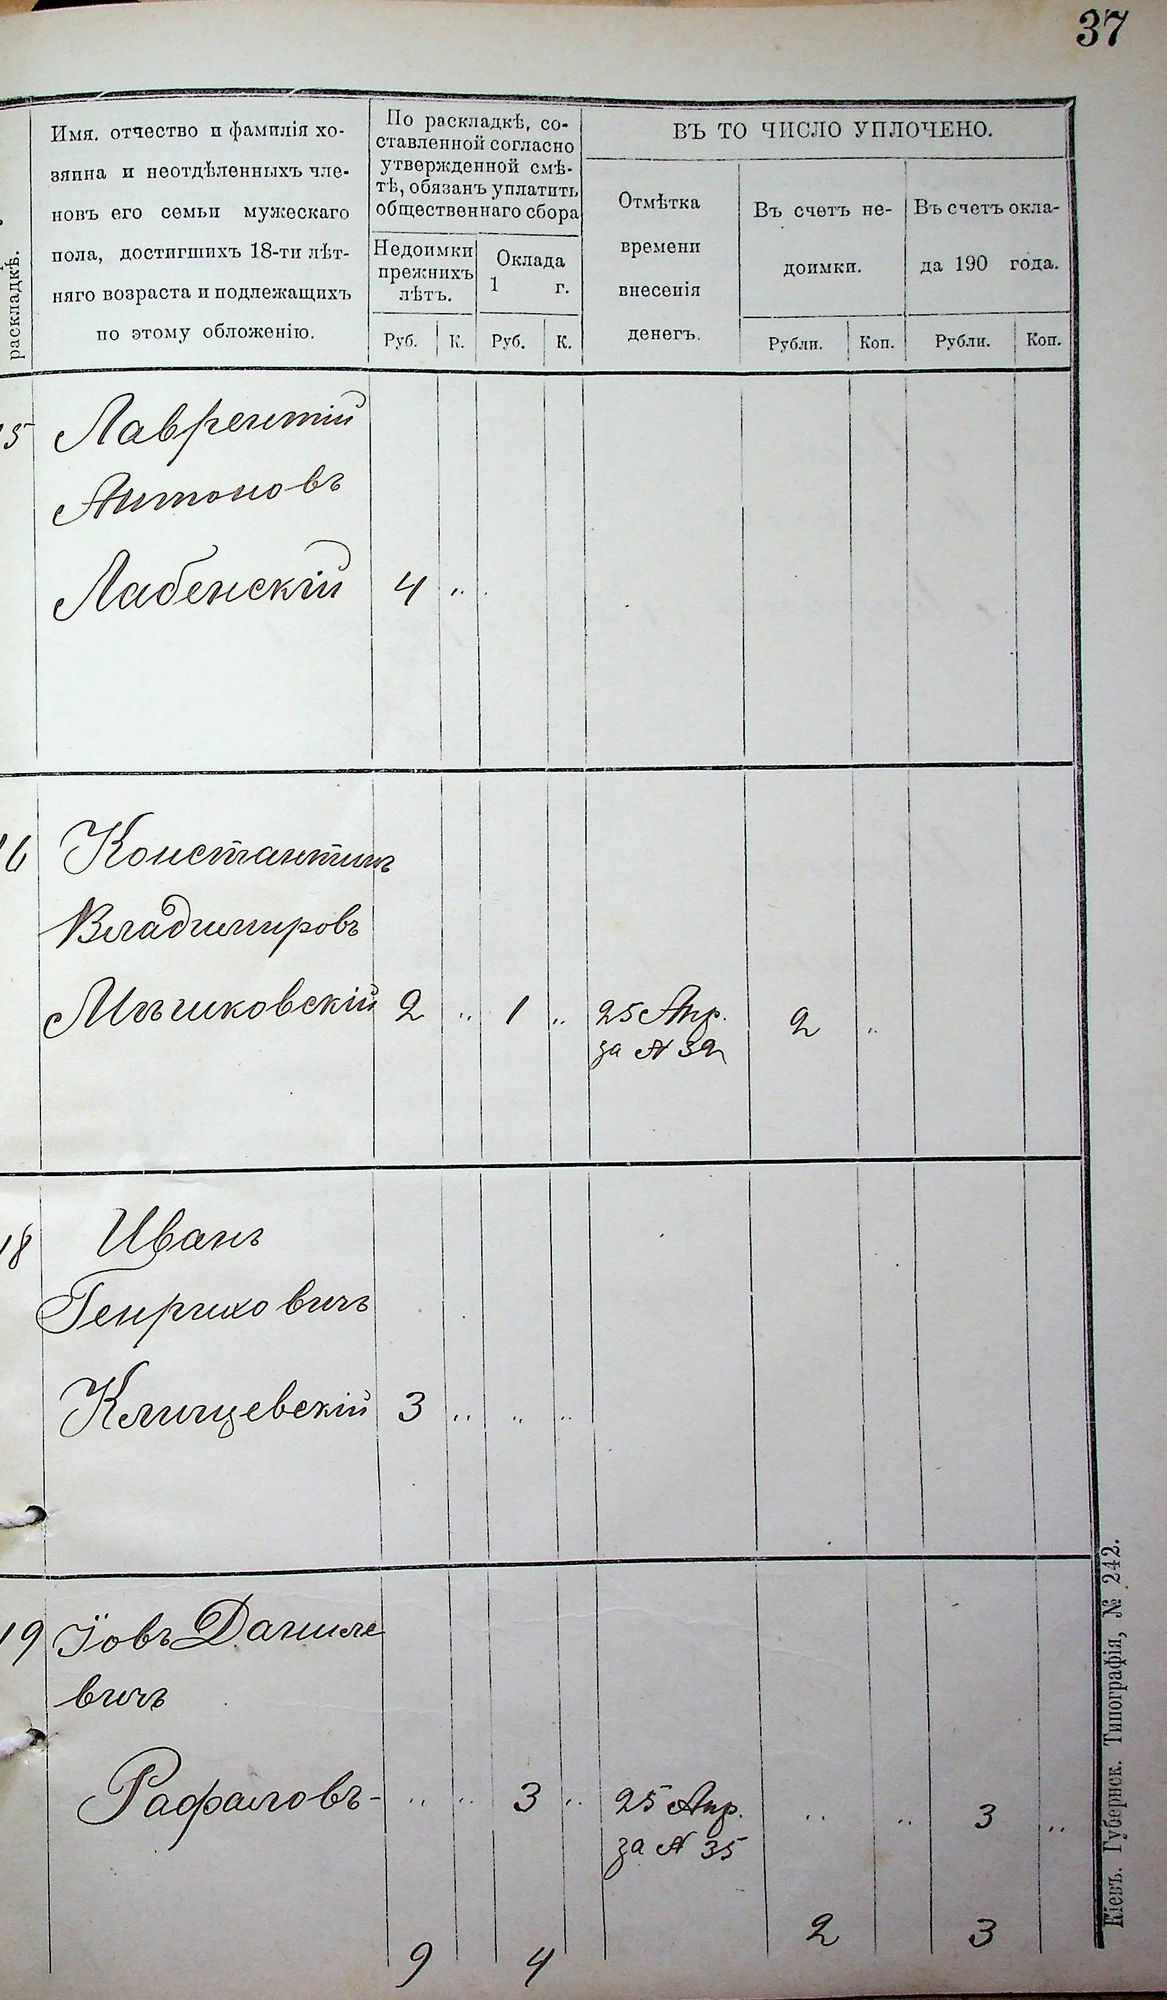 37
раскладкѣ.
Имя, отчество и фамилія хо-
зяина и неотдѣленныхъ чле-
новъ его семьи мужескаго
пола, достигшихъ 18-ти лѣт-
няго возраста и подлежащихъ
по этому обложенію.
По раскладкѣ, со-
ставленной согласно
утвержденной смѣ-
тѣ, обязанъ уплатить
общественнаго сбора
Недоимки
прежнихъ
лѣтъ.
Оклада
1 г.
Руб. К. Руб. К.
ВЪ ТО ЧИСЛО УПЛОЧЕНО.
Отмѣтка
времени
внесенія
денегъ.
Въ счетъ не-
доимки.
Въ счетъ окла-
да 190 года.
Рубли. Коп. Рубли. Коп.
15 Лаврентій
Антоновъ
Лабенскій 4 "
16 Константинъ
Владимировъ
Мышковскій 2 " 1 " 25 Апр. 2 "
за № 32
18 Иванъ
Генриховичъ
Клищевскій 3 " " "
19 Іовъ Даниле
вичъ
Рафаловъ- " " 3 " 25 Апр. " " 3 "
за № 35
9 4 2 3
Кіевъ. Губернск. Типографія, № 242.